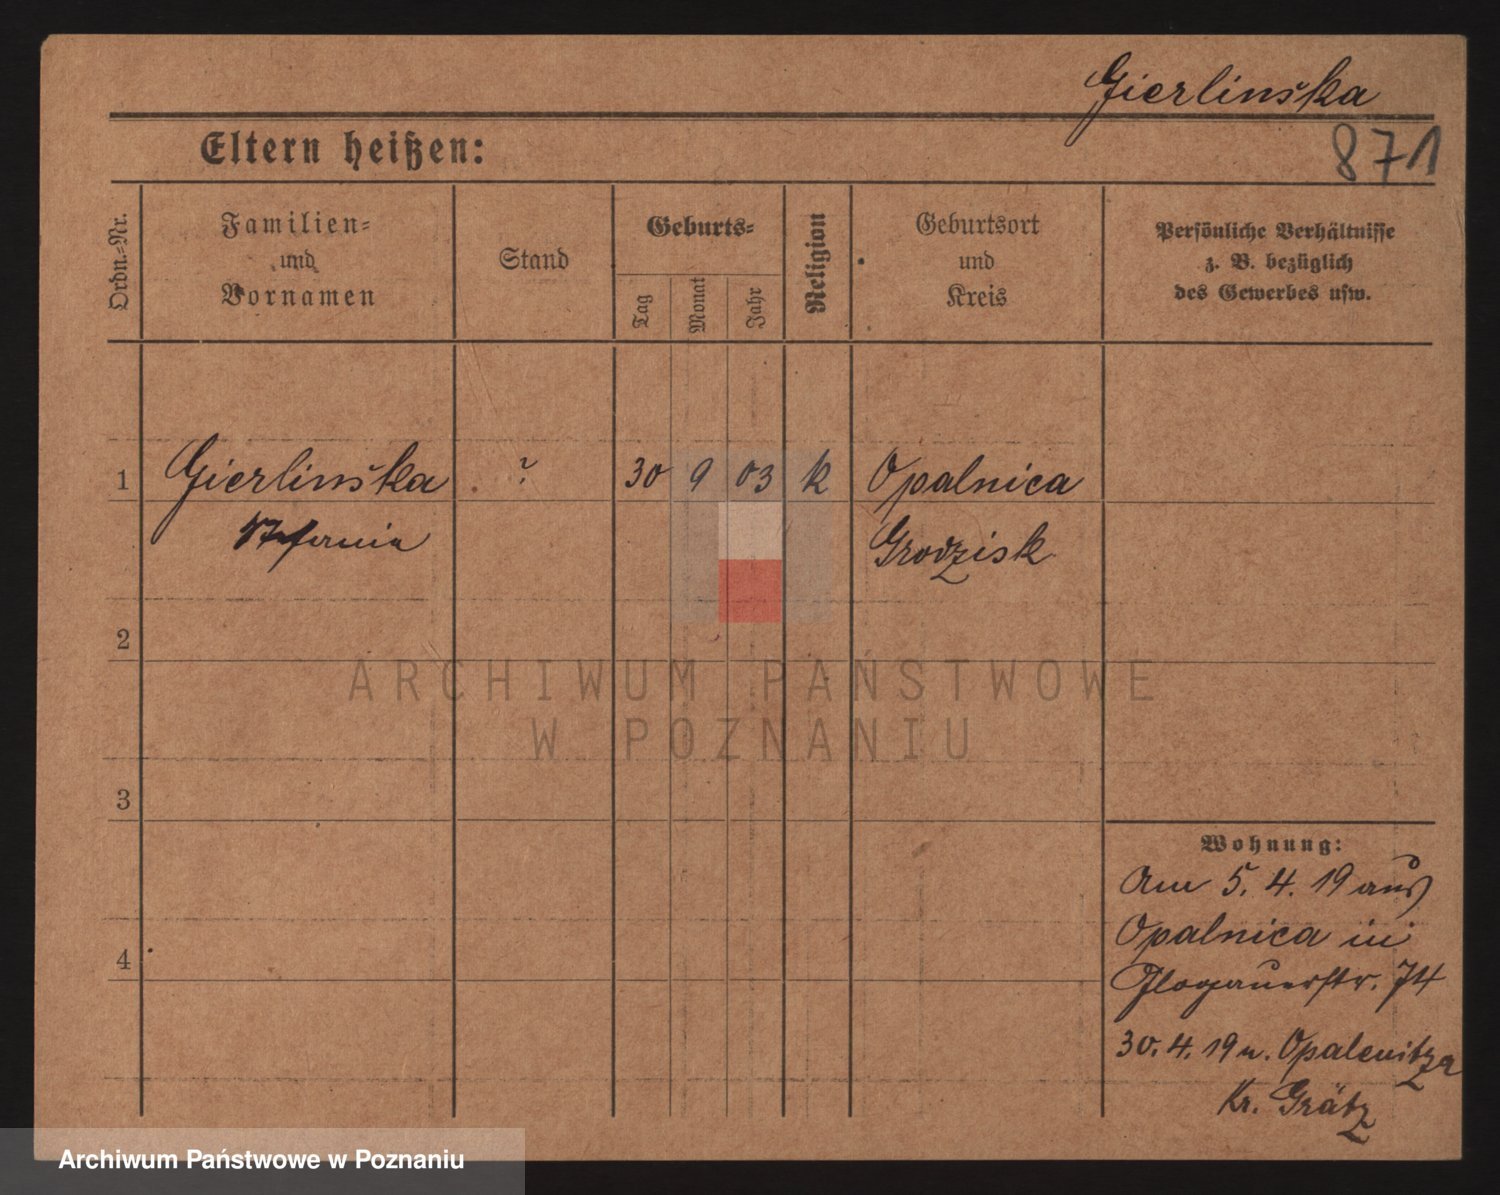 Gierlinska
871
Eltern heißen:
Ordn.-Nr.
Familien-
und
Vornamen
Stand
Geburts-
Tag
Monat
Jahr
Religion
Geburtsort
und
Kreis
Persönliche Verhältnisse
z. B. bezüglich
des Gewerbes usw.
1 Gierlinska ? 30 9 03 k Opalnica
Stefania Grodzisk
2
ARCHIWUM PAŃSTWOWE
W POZNANIU
3
Wohnung:
Am 5. 4. 19 aus
Opalnica in
4
Glogauerstr. 74
30. 4. 19 n. Opalenitza
Kr. Grätz
Archiwum Państwowe w Poznaniu